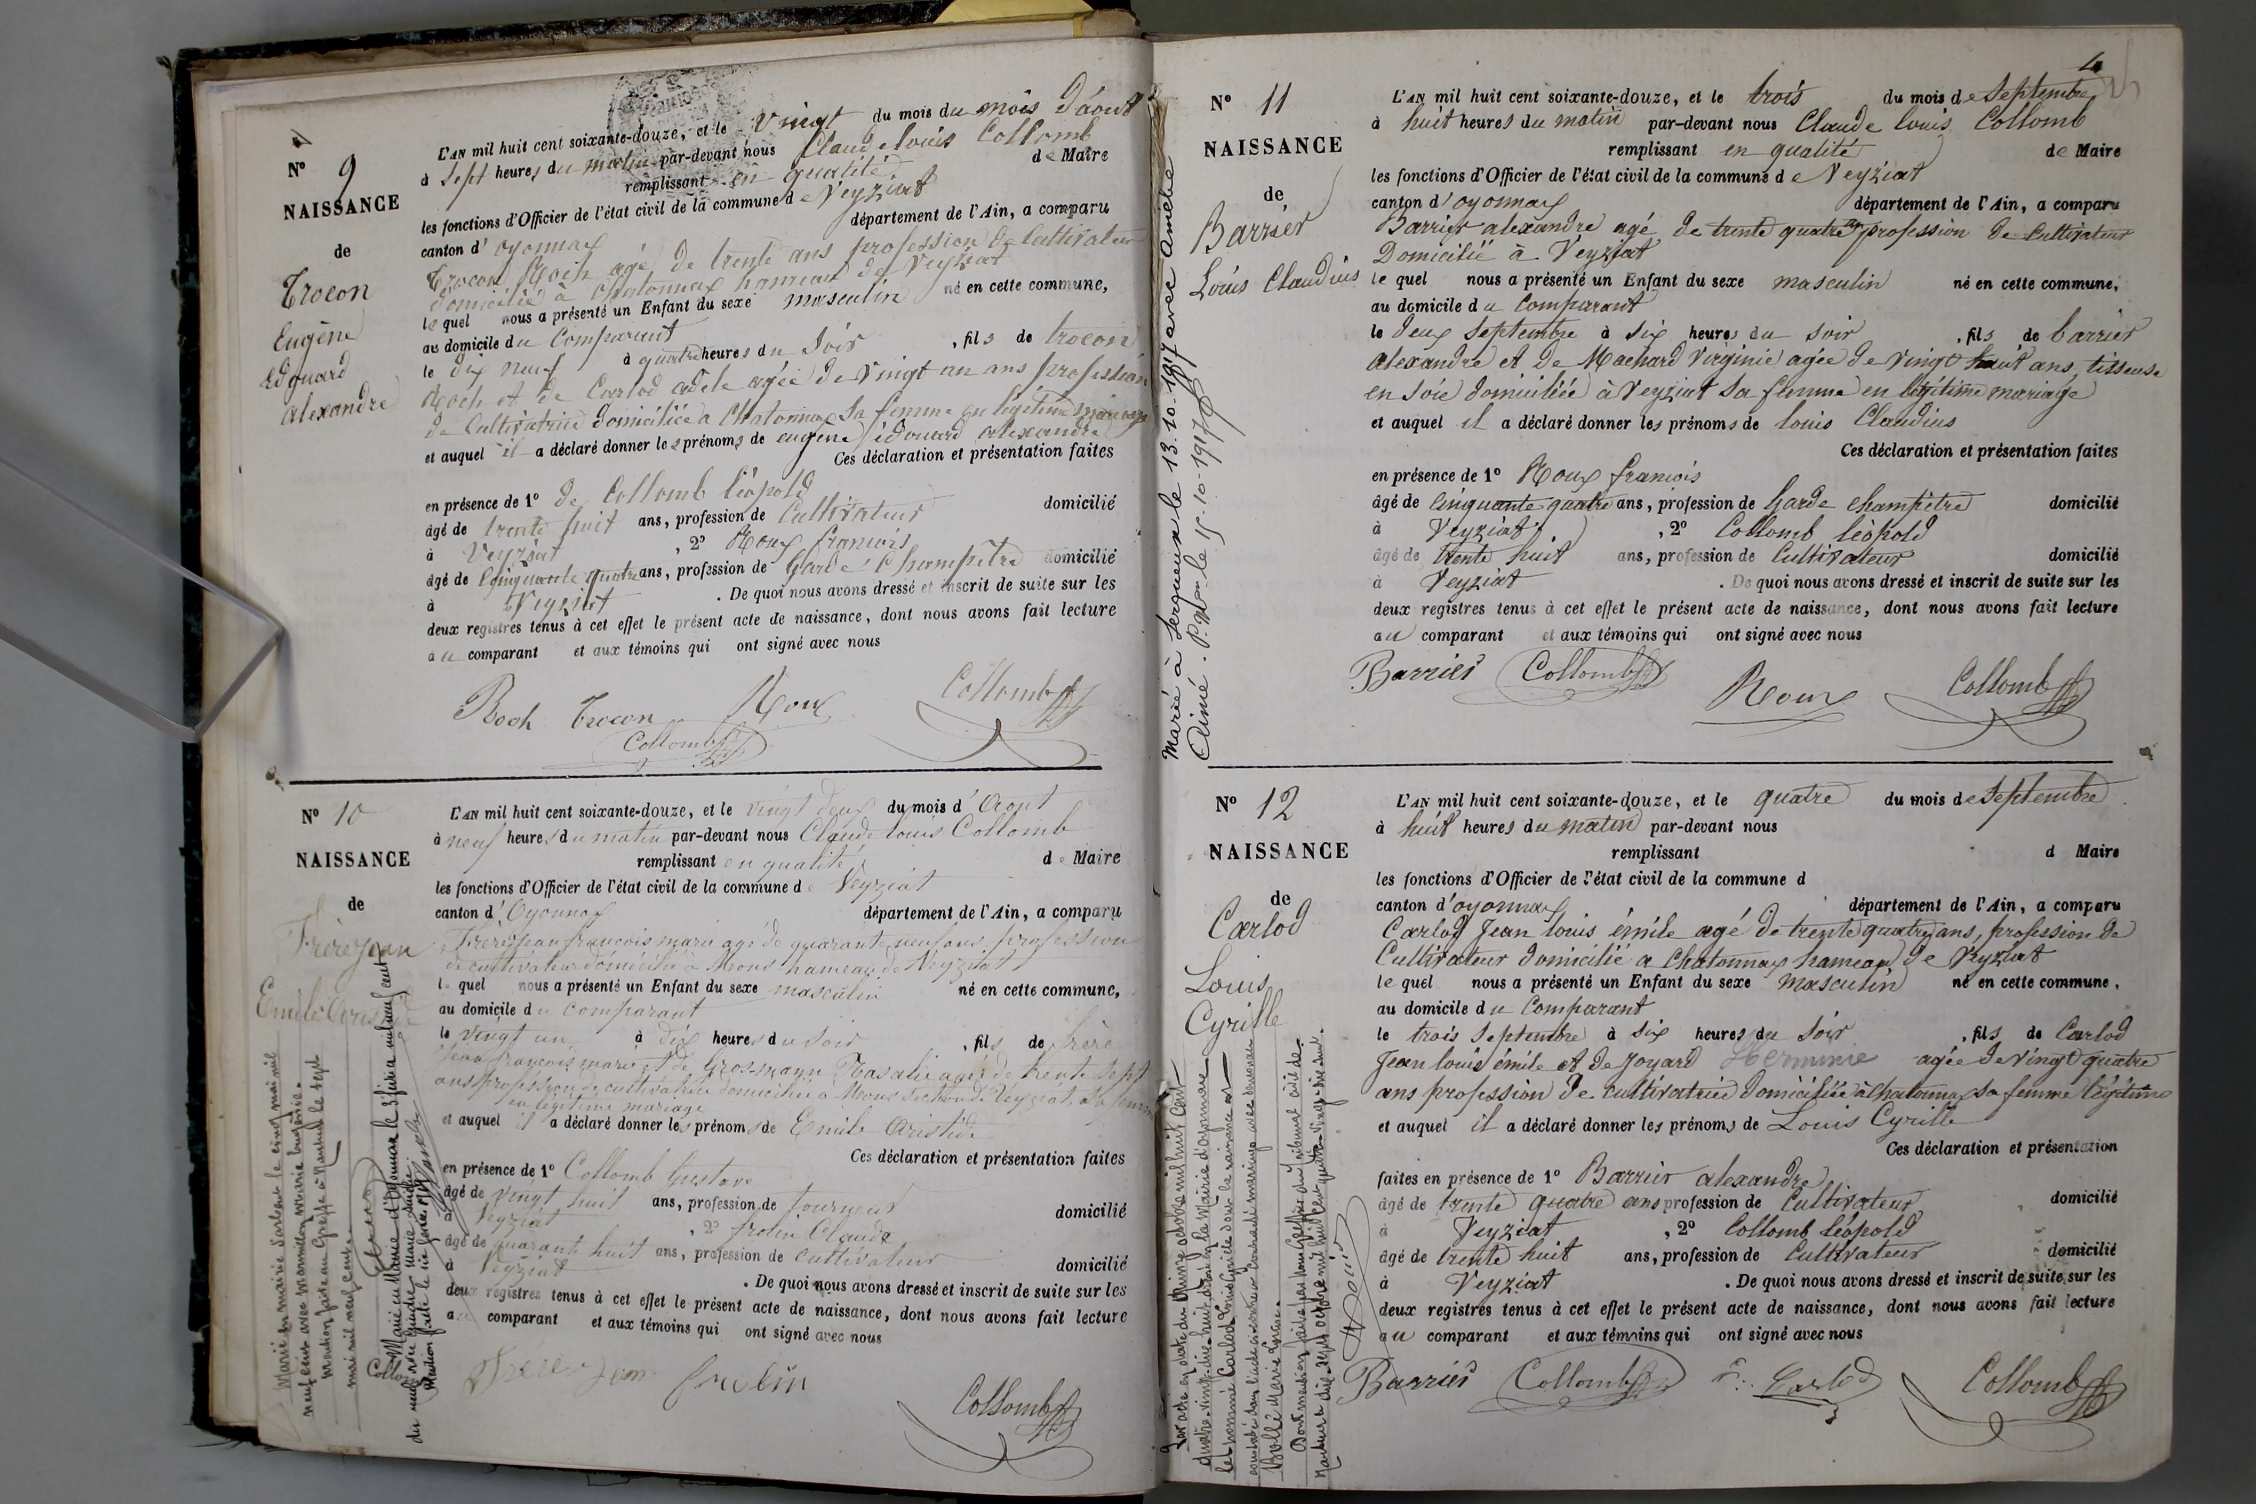 N° 9
NAISSANCE
de
Trocon
Eugène
Edouard
Alexandre
L'AN mil huit cent soixante-douze, et le Vingt du mois du mois d'août
à Sept heures du matin par-devant nous Claude Louis Collomb
remplissant en qualité de Maire
les fonctions d'Officier de l'état civil de la commune de Veyziat
canton d'oyonnax département de l'Ain, a comparu
Trocon Roch agé de trente ans profession de Cultivateur
domicilié à Chatonnax hameau de Veyziat
lequel nous a présenté un Enfant du sexe masculin né en cette commune,
au domicile du Comparant
le dix neuf à quatre heures du Soir, fils de trocon
Roch et de Carlod adèle agée de Vingt un ans profession
de Cultivatrice domiciliée à Chatonnax Sa femme en légitime mariage
et auquel il a déclaré donner les prénoms de eugène édouard alexandre
Ces déclaration et présentation faites
en présence de 1° de Collomb léopold
âgé de trente huit ans, profession de Cultivateur domicilié
à Veyziat, 2° Roux françois
âgé de Cinquante quatre ans, profession de Garde Champêtre domicilié
à Veyziat. De quoi nous avons dressé et inscrit de suite sur les
deux registres tenus à cet effet le présent acte de naissance, dont nous avons fait lecture
au comparant et aux témoins qui ont signé avec nous
Roch Trocon Roux Collomb
Collomb
N° 10
NAISSANCE
de
Frèrejean
Emile Aristide
L'AN mil huit cent soixante-douze, et le vingt deux du mois d'Aout
à neuf heures du matin par-devant nous Claude Louis Collomb
remplissant en qualité de Maire
les fonctions d'Officier de l'état civil de la commune de Veyziat
canton d'Oyonnax département de l'Ain, a comparu
Frèrejean françois marie agé de quarante neuf ans profession
de cultivateur domicilié à Mons hameau de Veyziat
lequel nous a présenté un Enfant du sexe masculin né en cette commune,
au domicile du comparant
le vingt un à dix heures du soir, fils de frère
Jean françois marie et de Grosmann Rosalie agée de trente sept
ans profession de cultivatrice domiciliée à Mons section de Veyziat, sa femme
en légitime mariage
et auquel il a déclaré donner les prénoms de Emile Aristide
Ces déclaration et présentation faites
en présence de 1° Collomb Gustave
âgé de vingt huit ans, profession de tourneur domicilié
à Veyziat, 2° frolin Claude
âgé de quarante huit ans, profession de cultivateur domicilié
à Veyziat. De quoi nous avons dressé et inscrit de suite sur les
deux registres tenus à cet effet le présent acte de naissance, dont nous avons fait lecture
au comparant et aux témoins qui ont signé avec nous
Frère Jean frolin
Collomb
Marié en mairie le cinq mai mil
neuf cent avec Marie Eugénie.
Mention faite au Greffe à Nantua le sept
mai mil neuf cent
Marié en Mairie d'Oyonnax le 3 février mil neuf cent
4
N° 11
NAISSANCE
de
Barrier
Louis Claudius
Marié à Serqueux le 13.10.1917 avec Amélie
Aimé. le 15-10-1917
L'AN mil huit cent soixante-douze, et le trois du mois de Septembre
à huit heures du matin par-devant nous Claude Louis Collomb
remplissant en qualité de Maire
les fonctions d'Officier de l'état civil de la commune de Veyziat
canton d'oyonnax département de l'Ain, a comparu
Barrier alexandre agé de trente quatre ans profession de Cultivateur
Domicilié à Veyziat
lequel nous a présenté un Enfant du sexe masculin né en cette commune,
au domicile du Comparant
le deux Septembre à Six heures du soir, fils de barrier
alexandre et de Machard Virginie agée de Vingt huit ans, tisseuse
en soie domiciliée à Veyziat Sa femme en légitime mariage
et auquel il a déclaré donner les prénoms de louis Claudius
Ces déclaration et présentation faites
en présence de 1° Roux francois
âgé de Cinquante quatre ans, profession de Garde champêtre domicilié
à Veyziat, 2° Collomb léopold
âgé de trente huit ans, profession de Cultivateur domicilié
à Veyziat. De quoi nous avons dressé et inscrit de suite sur les
deux registres tenus à cet effet le présent acte de naissance, dont nous avons fait lecture
au comparant et aux témoins qui ont signé avec nous
Barrier Collomb Roux Collomb
N° 12
NAISSANCE
de
Carlod
Louis
Cyrille
L'AN mil huit cent soixante-douze, et le quatre du mois de Septembre
à huit heures du matin par-devant nous
remplissant d Maire
les fonctions d'Officier de l'état civil de la commune d
canton d'oyonnax département de l'Ain, a comparu
Carlod Jean louis émile agé de trente quatre ans, profession de
Cultivateur domicilié a Chatonnax hameau de Veyziat
lequel nous a présenté un Enfant du sexe masculin né en cette commune,
au domicile du Comparant
le trois Septembre à six heures du Soir, fils de Carlod
Jean louis émile et de Joyard Herminie agée de vingt quatre
ans profession de cultivatrice domiciliée à Chatonnax sa femme légitime
et auquel il a déclaré donner les prénoms de Louis Cyrille
Ces déclaration et présentation
faites en présence de 1° Barrier alexandre
âgé de trente quatre ans profession de Cultivateur domicilié
à Veyziat, 2° Collomb léopold
âgé de trente huit ans, profession de Cultivateur domicilié
à Veyziat. De quoi nous avons dressé et inscrit de suite sur les
deux registres tenus à cet effet le présent acte de naissance, dont nous avons fait lecture
au comparant et aux témoins qui ont signé avec nous
Barrier Collomb Carlod Collomb
Par acte en date du quinze octobre mil huit cent
quatre-vingt-dix-huit dressé en la Mairie d'Oyonnax
le nommé Carlod Louis Cyrille dont la naissance est
constatée dans l'acte ci-contre a contracté mariage avec demoiselle
Bollé Marie
Dont mention faite par nous Greffier du tribunal civil de
Nantua le dix-sept octobre mil huit cent quatre-vingt-dix-huit.